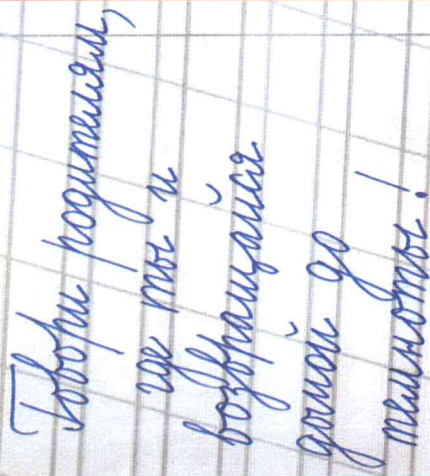 Говори родителям,
где ты и
возвращайся
домой до
темноты!